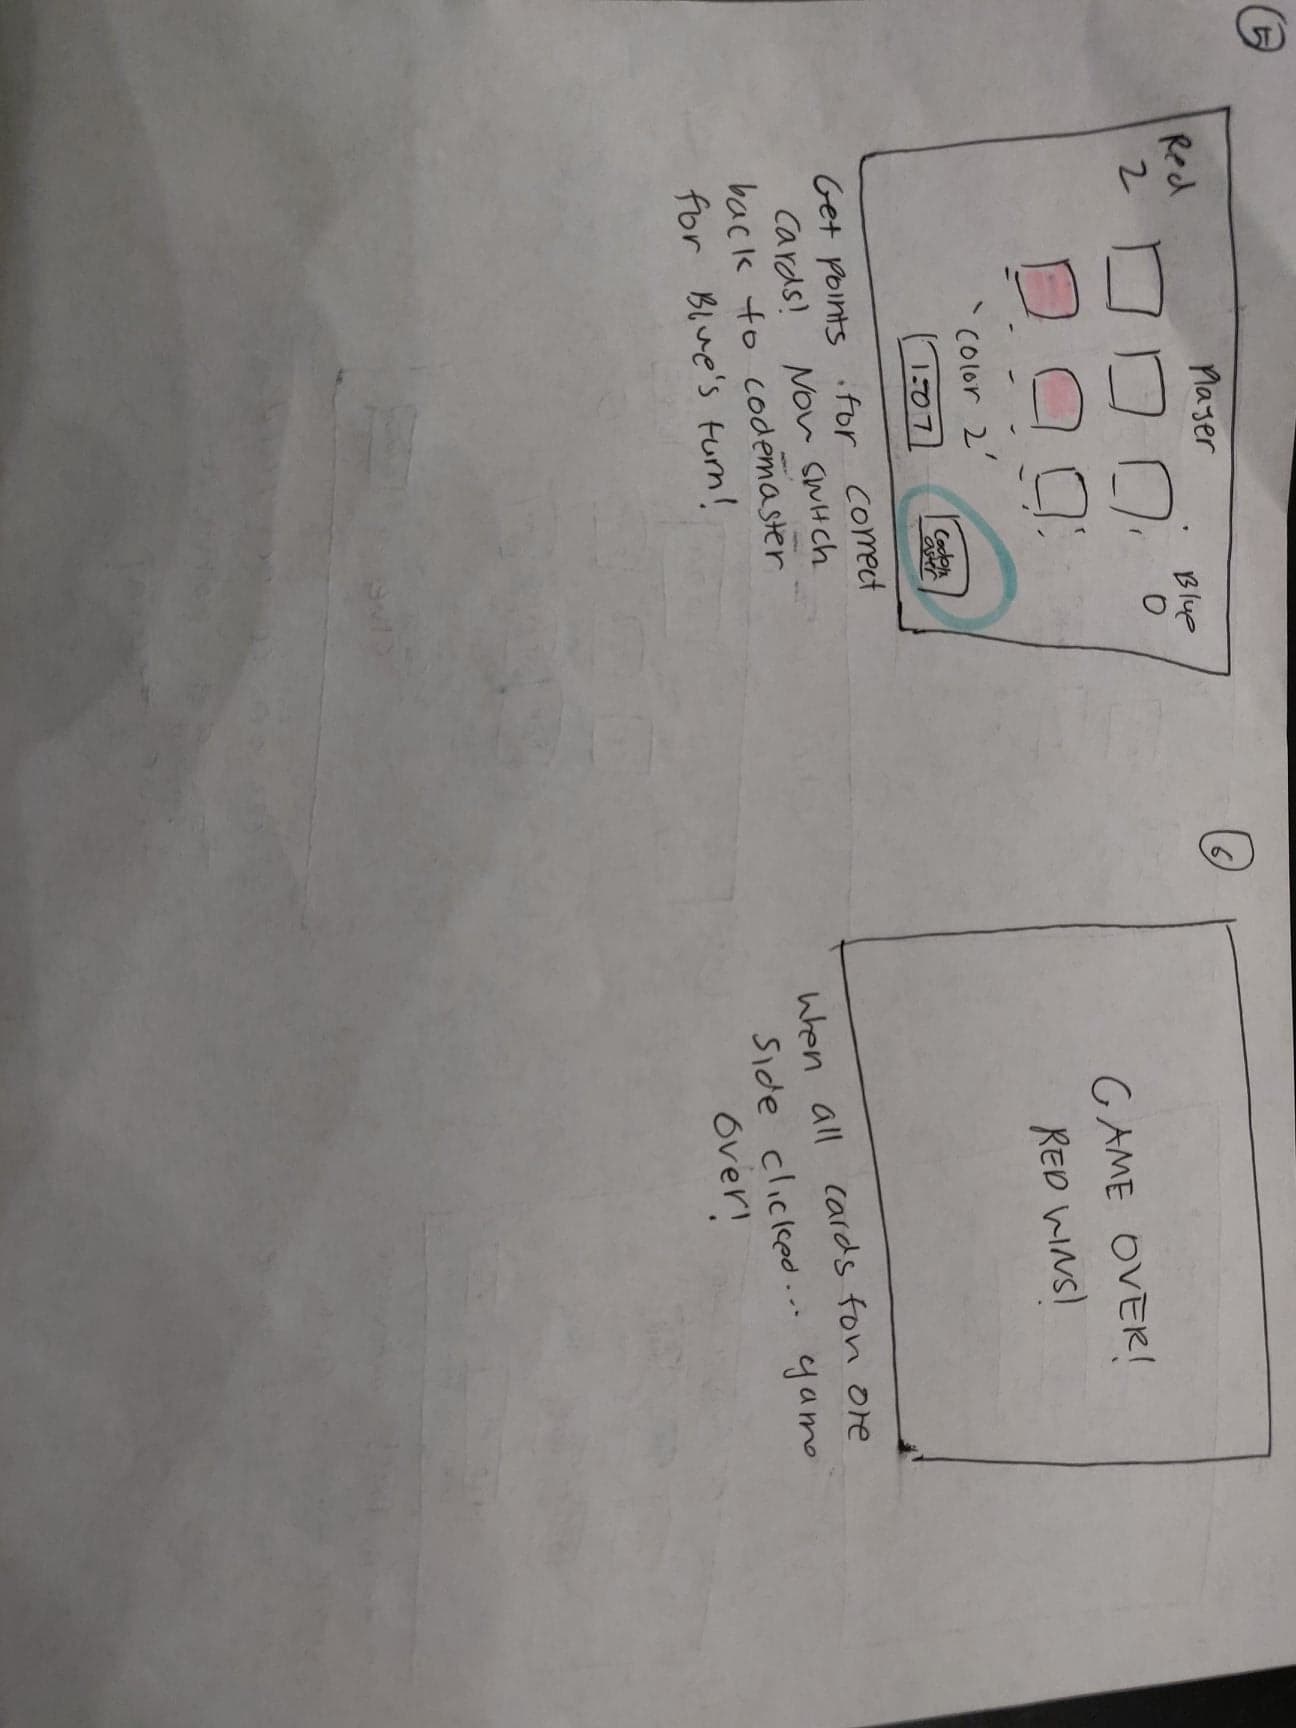 5
Player
Red
Blue
2
0
'color 2'
1:07
codem
aster
Get points for correct
cards! Now switch
back to codemaster
for Blue's turn!
6
GAME OVER!
RED WINS!
When all cards fon one
side clicked... game
over!